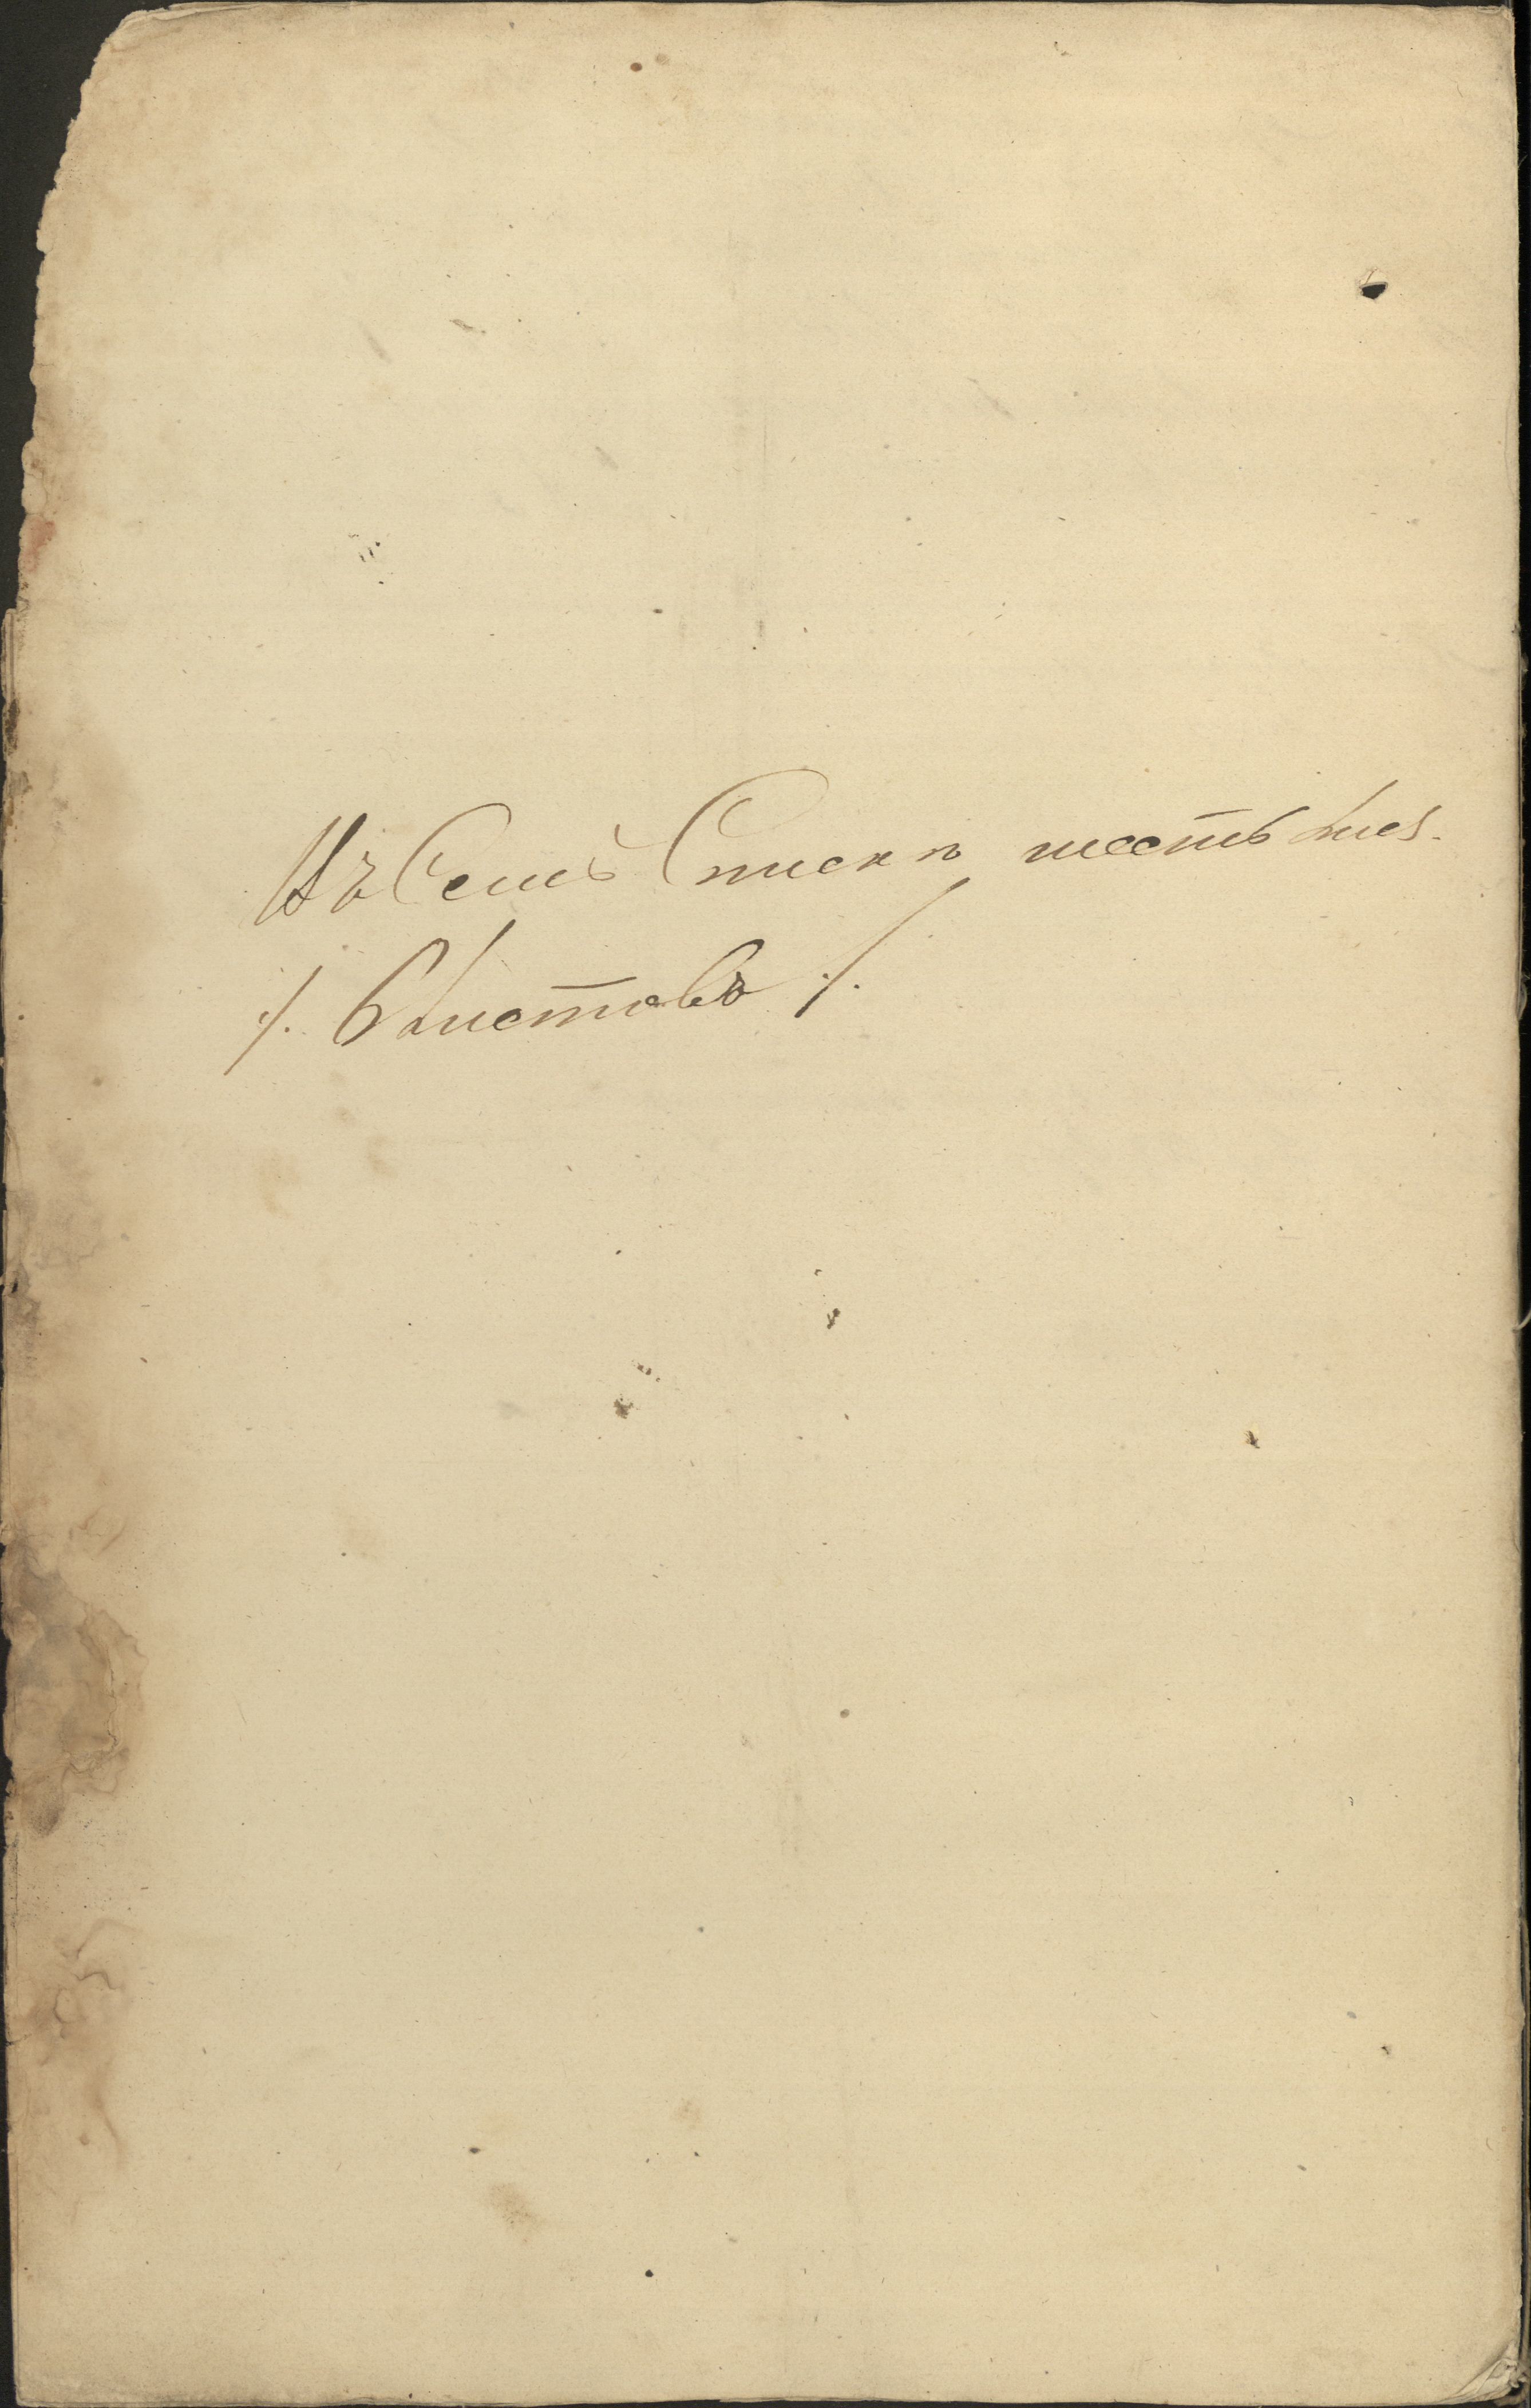 Въ Семъ Списке шесть лис.
/. 6 листовъ /.